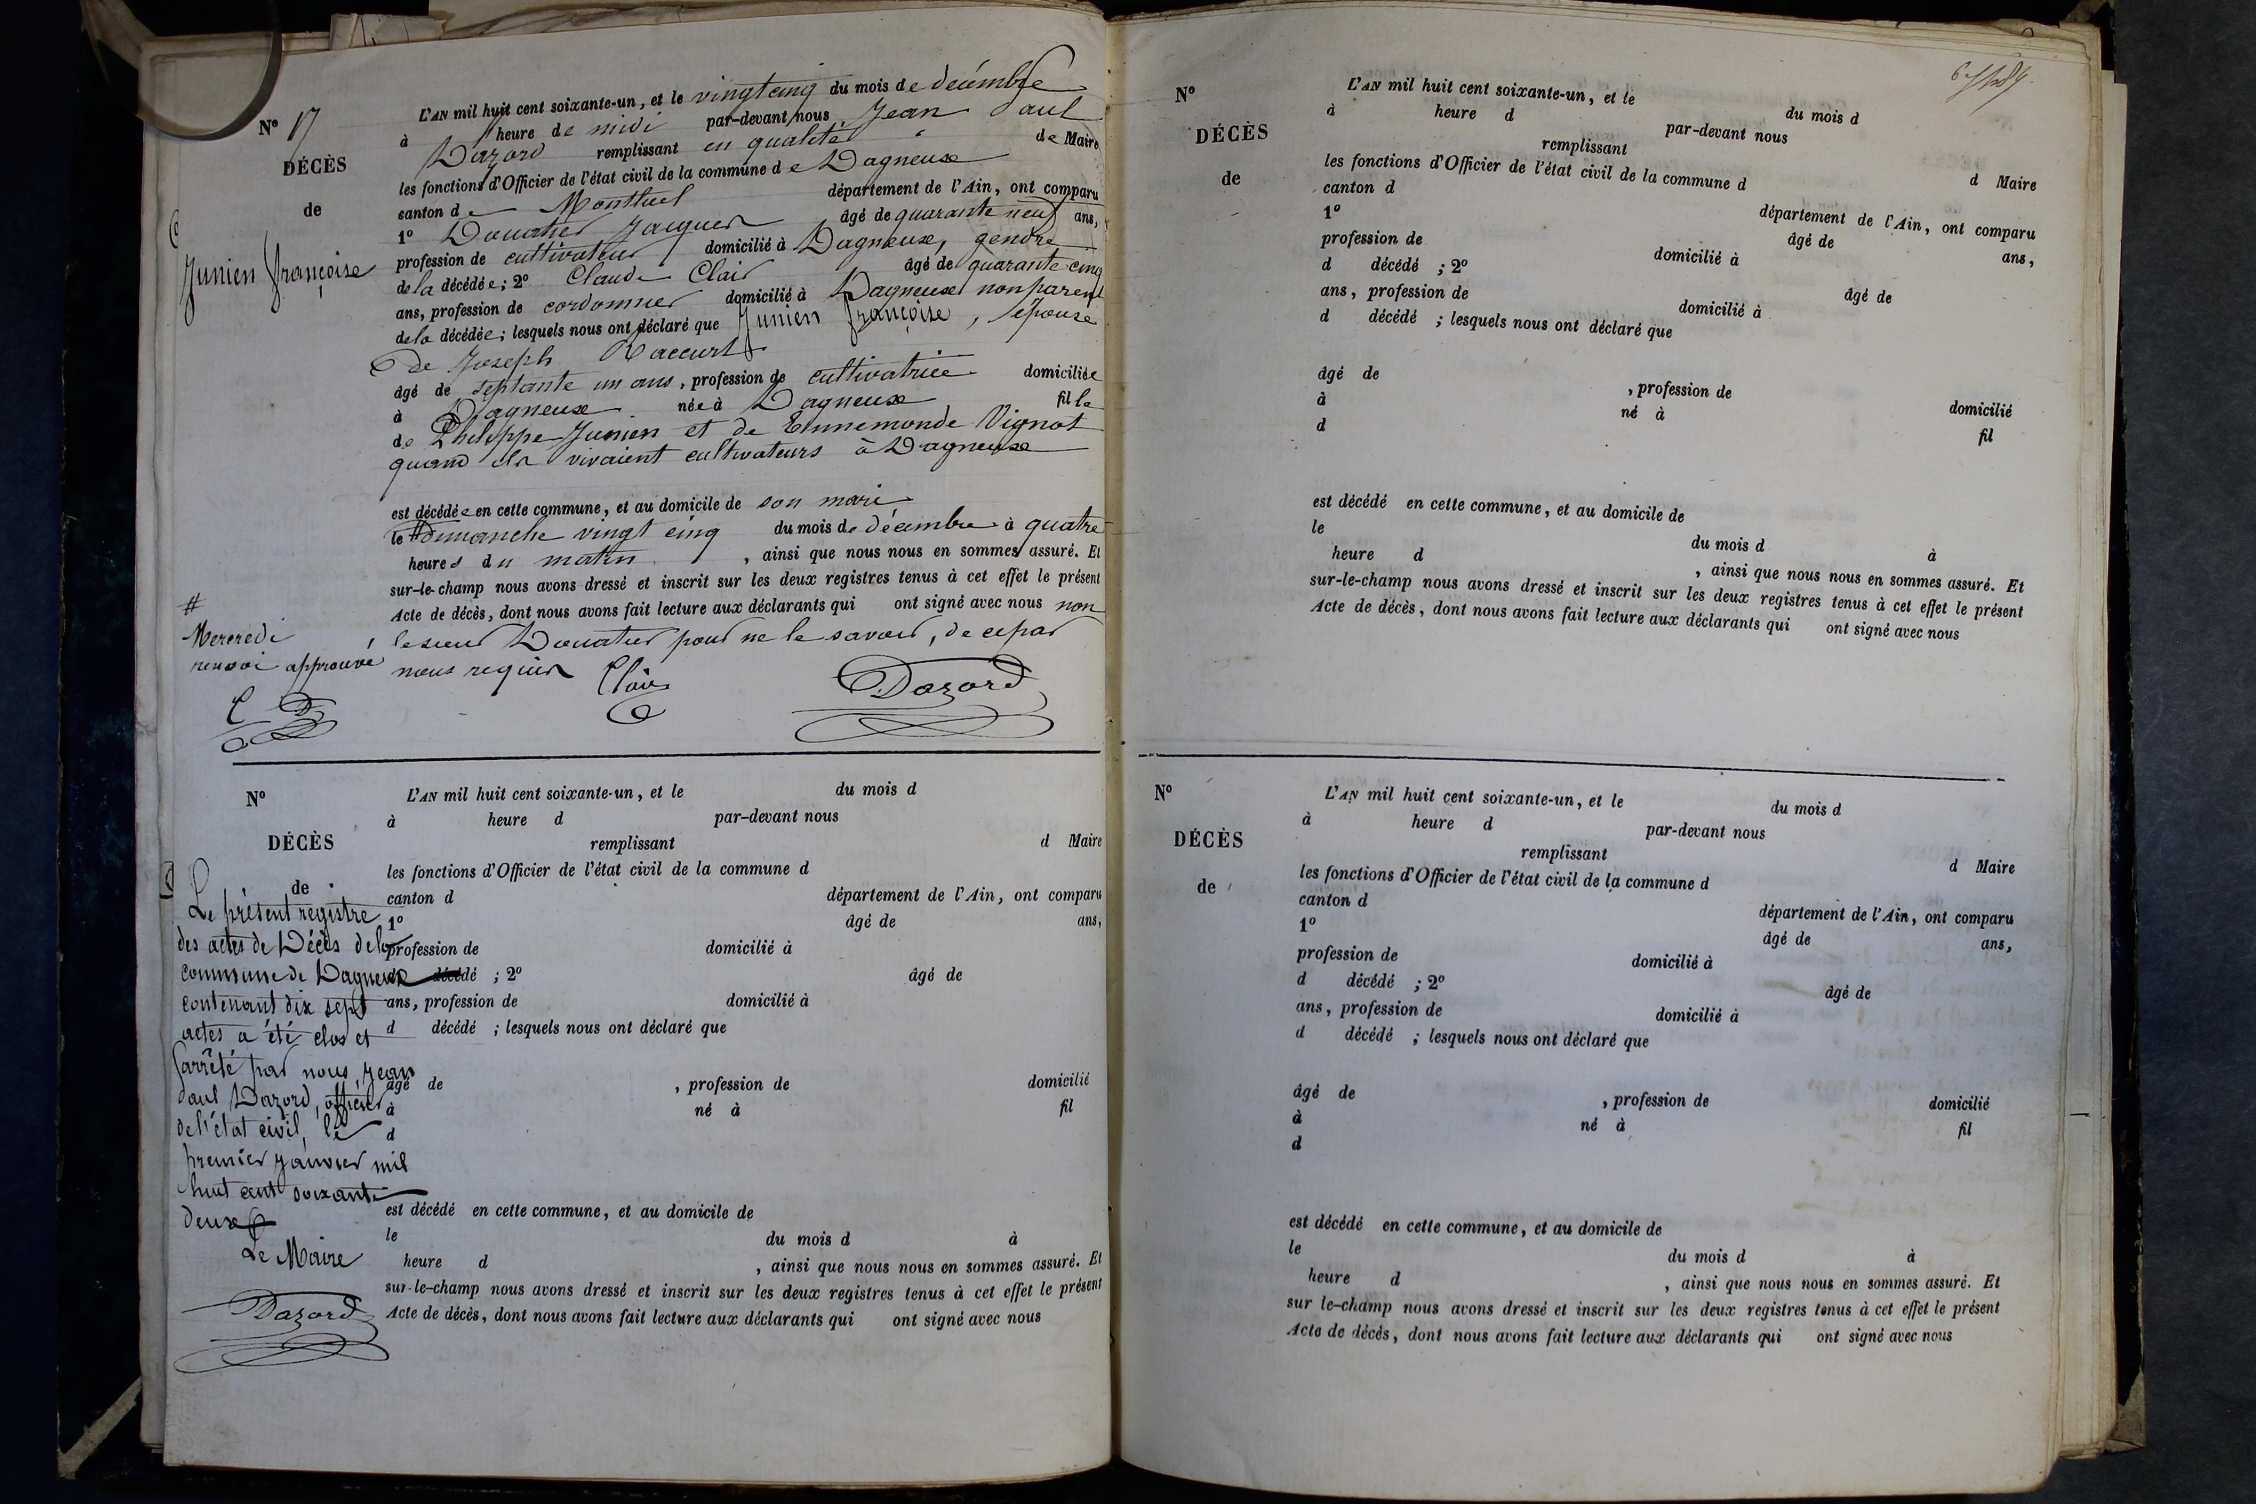 N° 17
DÉCÈS
de
Junien françoise
L'AN mil huit cent soixante-un, et le vingt cinq du mois de décembre
à heure de midi par-devant nous Jean Paul
Dazord remplissant en qualité de Maire
les fonctions d'Officier de l'état civil de la commune de Dagneux
canton de Montluel département de l'Ain, ont comparu
1° Douatier Jacques âgé de quarante neuf ans,
profession de cultivateur domicilié à Dagneux, gendre
de la décédée; 2° Claude Clair âgé de quarante cinq
ans, profession de cordonnier domicilié à Dagneux non parent
de la décédée; lesquels nous ont déclaré que Junien françoise, l'épouse
de Joseph Raccurt
âgé de septante un ans, profession de cultivatrice domiciliée
à Dagneux née à Dagneux fille
de Philippe Junien et de Ennemonde Vignat
quand ils vivaient cultivateurs à Dagneux
est décédée en cette commune, et au domicile de son mari
le # dimanche vingt cinq du mois de décembre à quatre
heures du matin, ainsi que nous nous en sommes assuré. Et
sur-le-champ nous avons dressé et inscrit sur les deux registres tenus à cet effet le présent
Acte de décès, dont nous avons fait lecture aux déclarants qui ont signé avec nous non
le sieur Douatier pour ne le savoir, de ce par
nous requis Clair Dazord
#
Mercredi
renvoi approuvé
C D
N°
DÉCÈS
de
L'AN mil huit cent soixante-un, et le du mois d
à heure d par-devant nous
remplissant d Maire
les fonctions d'Officier de l'état civil de la commune d
canton d département de l'Ain, ont comparu
1° âgé de ans,
profession de domicilié à
décédé ; 2° âgé de
ans, profession de domicilié à
d décédé ; lesquels nous ont déclaré que
âgé de , profession de domicilié
à né à fil
d
est décédé en cette commune, et au domicile de
le du mois d à
heure d , ainsi que nous nous en sommes assuré. Et
sur-le-champ nous avons dressé et inscrit sur les deux registres tenus à cet effet le présent
Acte de décès, dont nous avons fait lecture aux déclarants qui ont signé avec nous
Le présent registre
des actes de Décès de la
commune de Dagneux
contenant dix sept
actes a été clos et
arrêté par nous, Jean
Paul Dazord, officier
de l'état civil, le
premier Janvier mil
huit cent soixante
deux
Le Maire
Dazord
N°
DÉCÈS
de
L'AN mil huit cent soixante-un, et le du mois d
à heure d par-devant nous
remplissant d Maire
les fonctions d'Officier de l'état civil de la commune d
canton d département de l'Ain, ont comparu
1° âgé de ans,
profession de domicilié à
d décédé ; 2° âgé de
ans, profession de domicilié à
d décédé ; lesquels nous ont déclaré que
âgé de , profession de domicilié
à né à fil
d
est décédé en cette commune, et au domicile de
le du mois d à
heure d , ainsi que nous nous en sommes assuré. Et
sur-le-champ nous avons dressé et inscrit sur les deux registres tenus à cet effet le présent
Acte de décès, dont nous avons fait lecture aux déclarants qui ont signé avec nous
N°
DÉCÈS
de
L'AN mil huit cent soixante-un, et le du mois d
à heure d par-devant nous
remplissant d Maire
les fonctions d'Officier de l'état civil de la commune d
canton d département de l'Ain, ont comparu
1° âgé de ans,
profession de domicilié à
d décédé ; 2° âgé de
ans, profession de domicilié à
d décédé ; lesquels nous ont déclaré que
âgé de , profession de domicilié
à né à fil
d
est décédé en cette commune, et au domicile de
le du mois d à
heure d , ainsi que nous nous en sommes assuré. Et
sur le-champ nous avons dressé et inscrit sur les deux registres tenus à cet effet le présent
Acte de décès, dont nous avons fait lecture aux déclarants qui ont signé avec nous